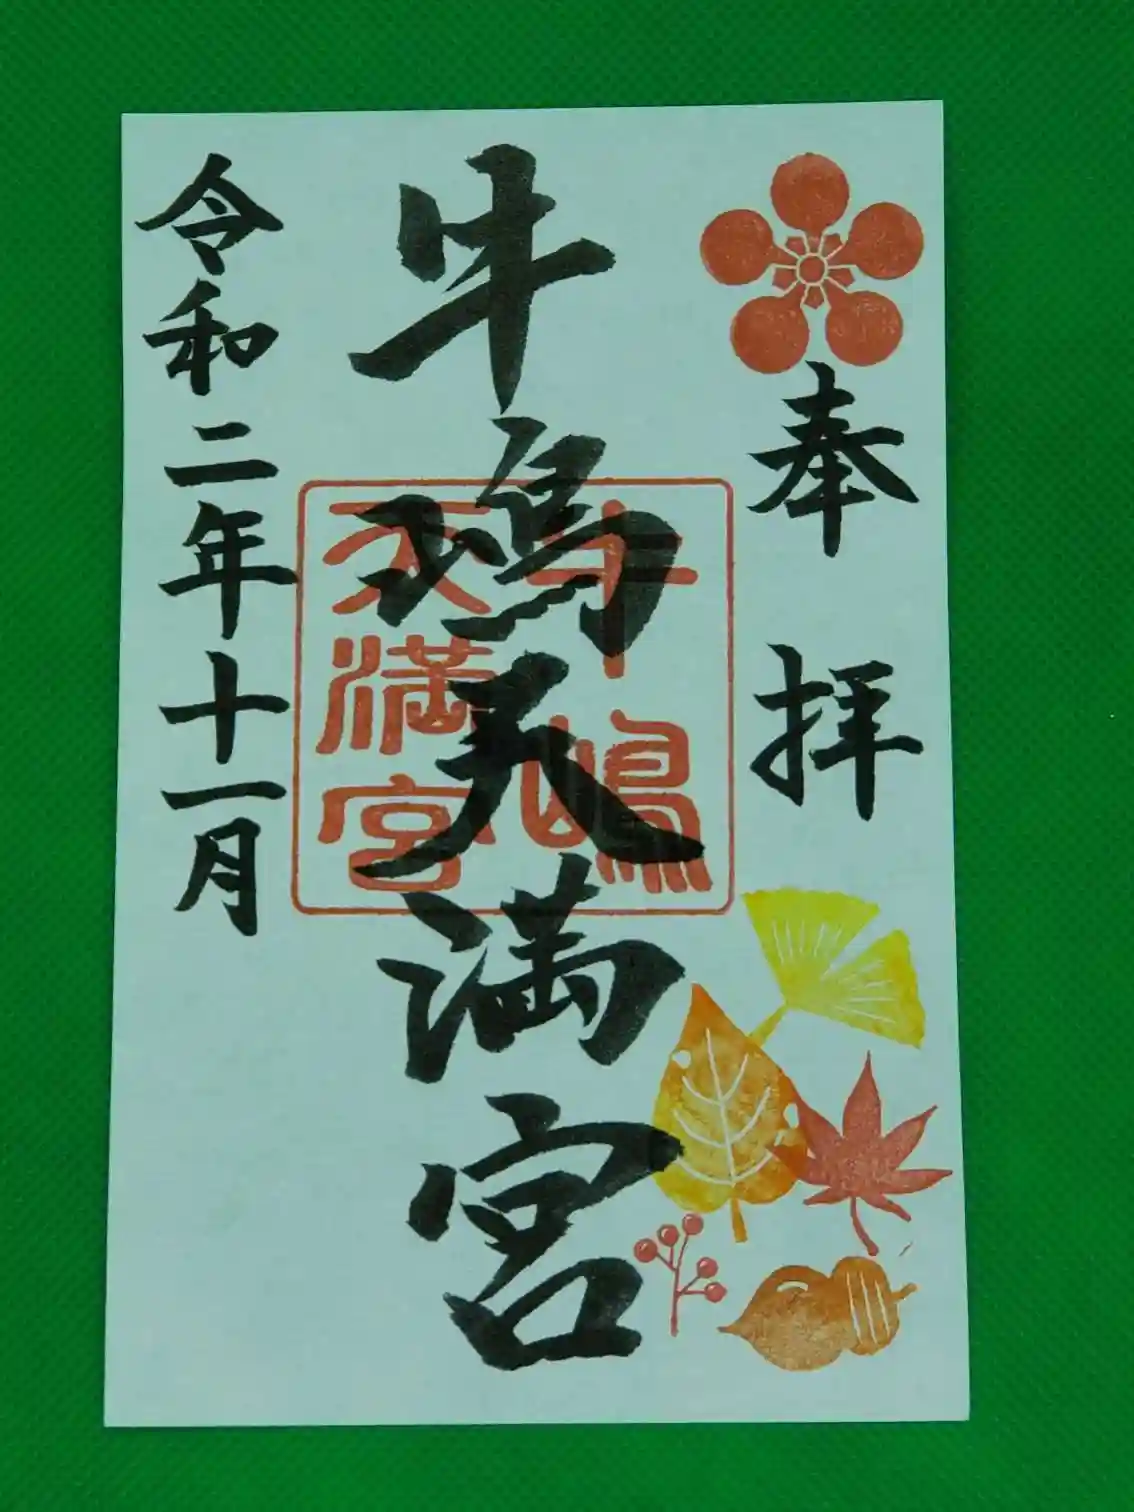 奉拝
牛嶋天満宮
牛嶋
天満宮
令和二年十一月